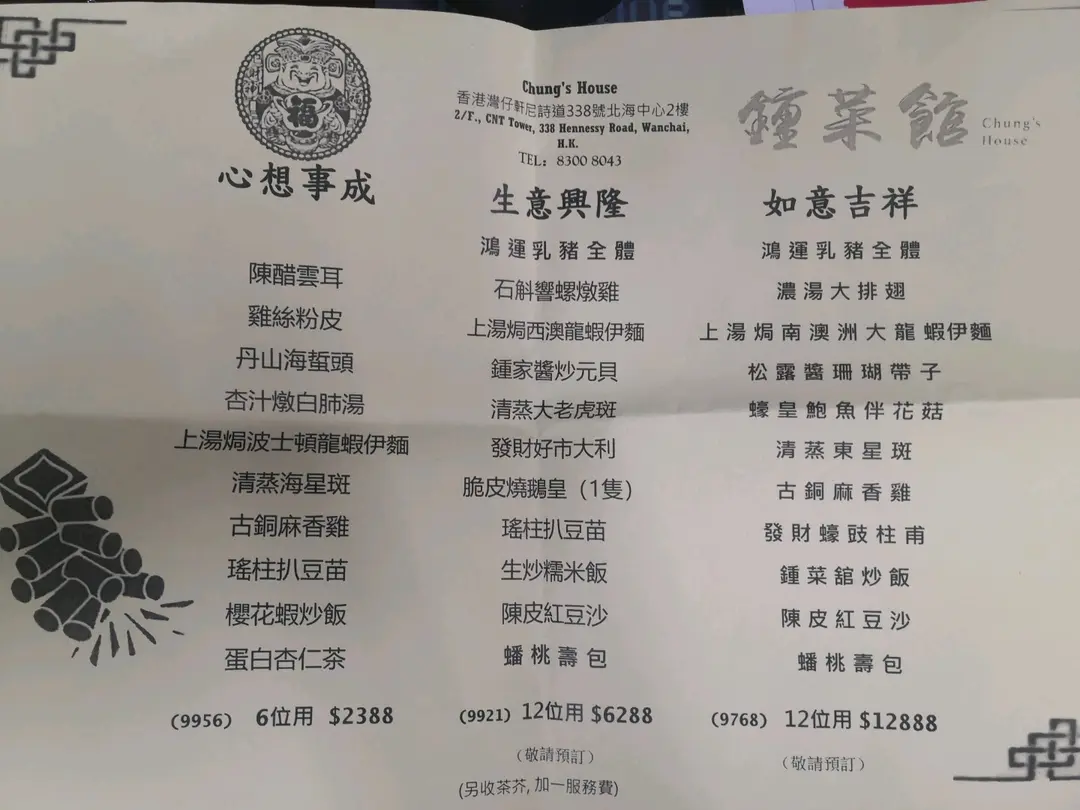 福
心想事成
陳醋雲耳
雞絲粉皮
丹山海蜇頭
杏汁燉白肺湯
上湯焗波士頓龍蝦伊麵
清蒸海星斑
古銅麻香雞
瑤柱扒豆苗
櫻花蝦炒飯
蛋白杏仁茶
(9956) 6位用 $2388
Chung's House
香港灣仔軒尼詩道338號北海中心2樓
2/F., CNT Tower, 338 Hennessy Road, Wanchai,
H.K.
TEL: 8300 8043
生意興隆
鴻運乳豬全體
石斛響螺燉雞
上湯焗西澳龍蝦伊麵
鍾家醬炒元貝
清蒸大老虎斑
發財好市大利
脆皮燒鵝皇（1隻）
瑤柱扒豆苗
生炒糯米飯
陳皮紅豆沙
蟠桃壽包
(9921) 12位用 $6288
（敬請預訂）
(另收茶芥, 加一服務費)
鐘菜館
Chung's
House
如意吉祥
鴻運乳豬全體
濃湯大排翅
上湯焗南澳洲大龍蝦伊麵
松露醬珊瑚帶子
蠔皇鮑魚伴花菇
清蒸東星斑
古銅麻香雞
發財蠔豉柱甫
鍾菜舘炒飯
陳皮紅豆沙
蟠桃壽包
(9768) 12位用 $12888
（敬請預訂）